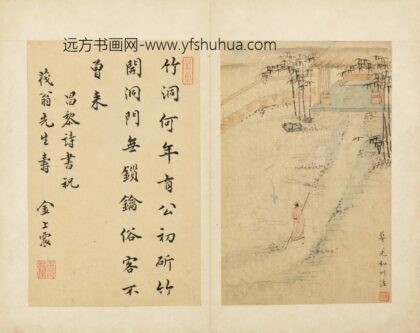 远方书画网-www.yfshuhua.com
竹洞何年有公初斫竹
開洞門無鎖鑰俗客不
曾來
昌黎詩書祝
翁先生壽
金上震